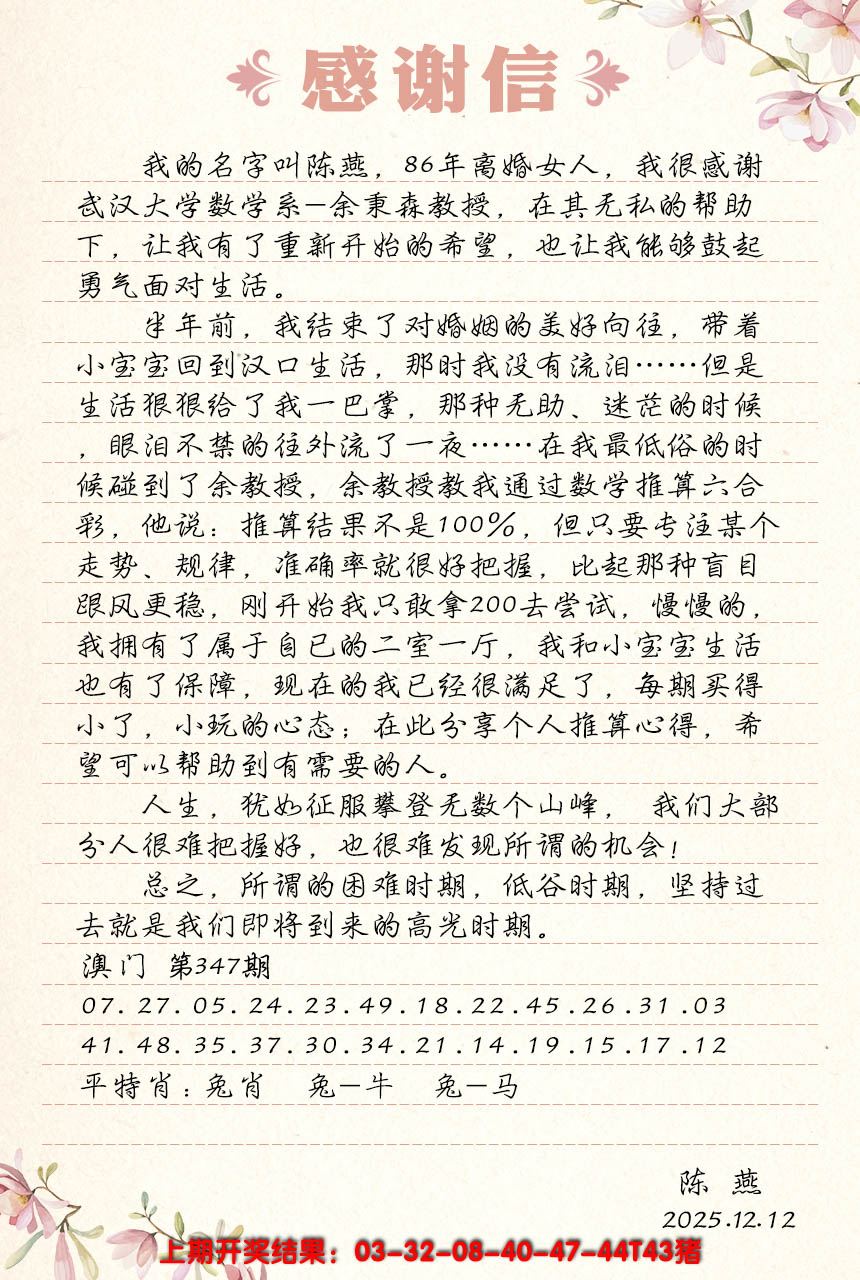 感谢信
我的名字叫陈燕，86年离婚女人，我很感谢
武汉大学数学系—余秉森教授，在其无私的帮助
下，让我有了重新开始的希望，也让我能够鼓起
勇气面对生活。
半年前，我结束了对婚姻的美好向往，带着
小宝宝回到汉口生活，那时我没有流泪……但是
生活狠狠给了我一巴掌，那种无助、迷茫的时候
，眼泪不禁的往外流了一夜……在我最低俗的时
候碰到了余教授，余教授教我通过数学推算六合
彩，他说：推算结果不是100%，但只要专注某个
走势、规律，准确率就很好把握，比起那种盲目
跟风更稳，刚开始我只敢拿200去尝试，慢慢的，
我拥有了属于自已的二室一厅，我和小宝宝生活
也有了保障，现在的我已经很满足了，每期买得
小了，小玩的心态；在此分享个人推算心得，希
望可以帮助到有需要的人。
人生，犹如征服攀登无数个山峰， 我们大部
分人很难把握好，也很难发现所谓的机会！
总之，所谓的困难时期，低谷时期，坚持过
去就是我们即将到来的高光时期。
澳门 第347期
07.27.05.24.23.49.18.22.45.26.31.03
41.48.35.37.30.34.21.14.19.15.17.12
平特肖：兔肖 兔—牛 兔—马
陈 燕
2025.12.12
上期开奖结果：03-32-08-40-47-44T43猪